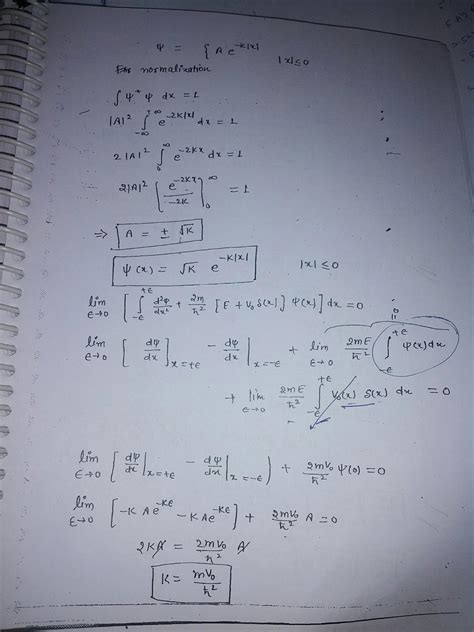 ψ = { A e^{-K|x|} |x| ≤ 0
For normalization
∫ ψ* ψ dx = 1
|A|² ∫_{-∞}^{+∞} e^{-2K|x|} dx = 1
2|A|² ∫_{0}^{∞} e^{-2Kx} dx = 1
2|A|² [ e^{-2Kx} / -2K ]_{0}^{∞} = 1
⇒ A = ± √K
ψ(x) = √K e^{-K|x|} |x| ≤ 0
lim_{ϵ→0} [ ∫_{-ϵ}^{+ϵ} d²ψ/dx² + 2m/ħ² [ E + V₀ δ(x) ] ψ(x) ] dx = 0
lim_{ϵ→0} [ dψ/dx ]_{x=+ϵ} - dψ/dx |_{x=-ϵ} + lim_{ϵ→0} 2mE/ħ² ∫_{-ϵ}^{+ϵ} ψ(x) dx = 0
+ lim_{ϵ→0} 2mE/ħ² ∫_{-ϵ}^{+ϵ} V₀(x) δ(x) dx = 0
lim_{ϵ→0} [ dψ/dx |_{x=+ϵ} - dψ/dx |_{x=-ϵ} ) + 2mV₀/ħ² ψ(0) = 0
lim_{ϵ→0} [ -K A e^{-Kϵ} - K A e^{-Kϵ} ] + 2mV₀/ħ² A = 0
2KA = 2mV₀/ħ² A
K = mV₀/ħ²